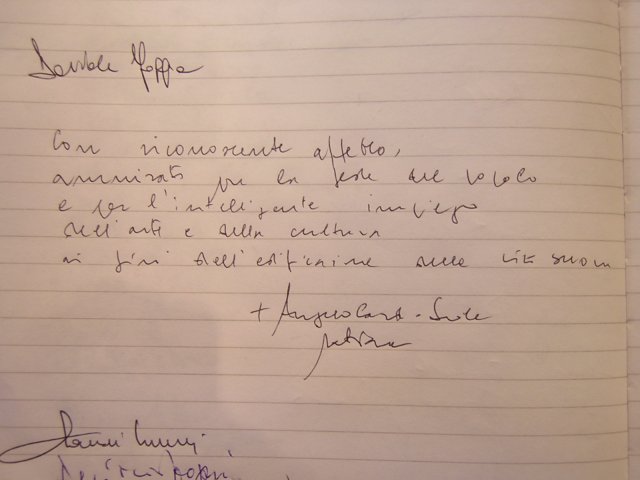 Davide
Con riconoscente affetto,
ammirato per la fede del popolo
e per l'intelligente impiego
dell'arte e della cultura
ai fini dell'edificazione della vita buona
+ Angelo Card. Scola
patriarca